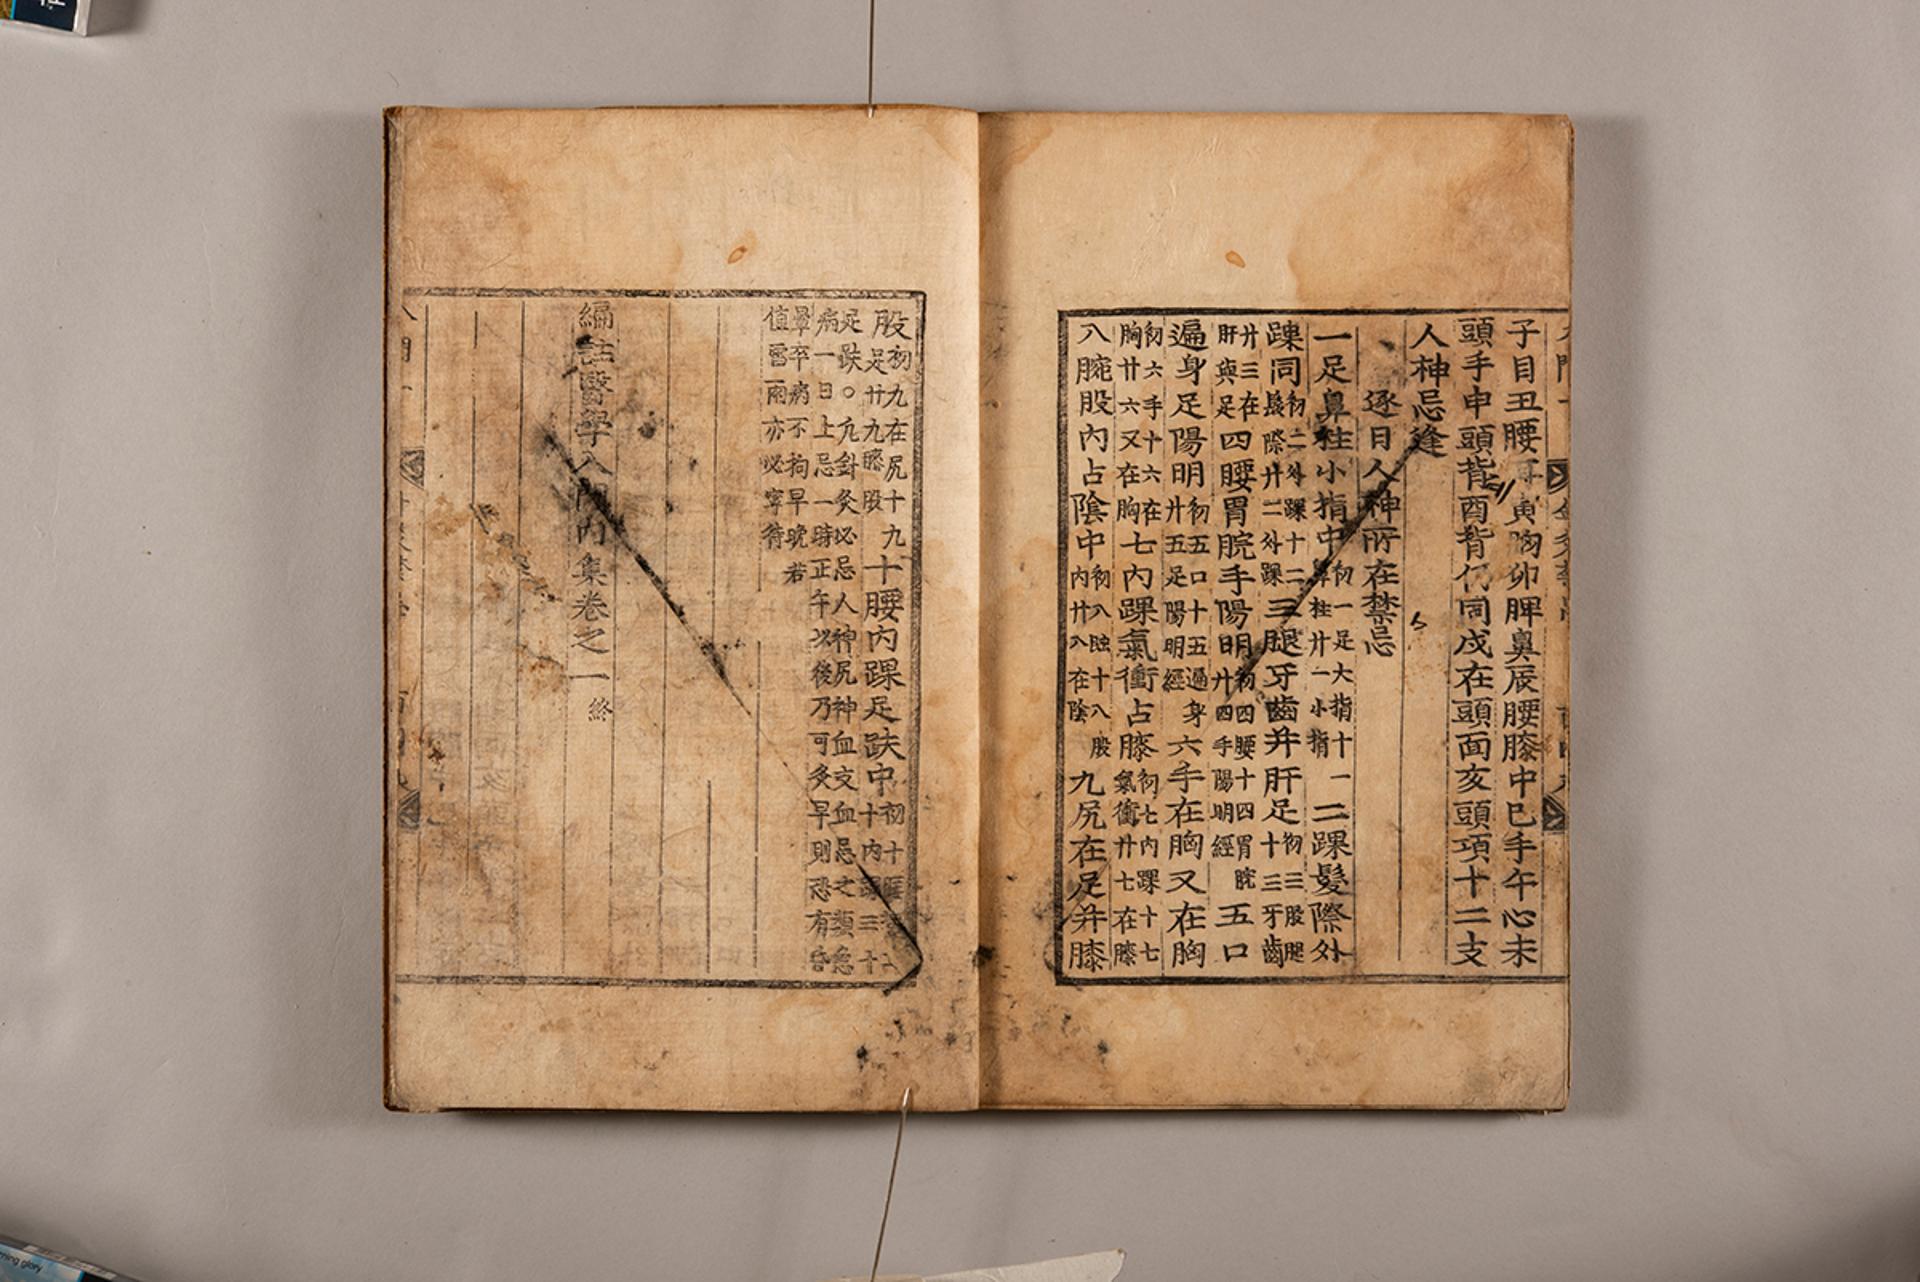 子目丑腰耳寅胸卯脾鼻辰腰膝中巳手午心未
頭手申頭背酉背仍同戌在頭面亥頭項十二支
人神忌逢
逐日人神所在禁忌
一足鼻柱小指中初一足大指十一鼻柱廿一小指二踝髮際外
踝同初二外踝十二髮際廿二外踝三腿牙齒并肝足初三股腿十三牙齒
廿三在肝與足四腰胃脘手陽明初四腰十四胃脘廿四手陽明經五口
遍身足陽明初五口十五遍身廿五足陽明經六手在胸又在胸
初六手十六在胸廿六又在胸七內踝氣衝占膝初七內踝十七氣衝廿七在膝
八腕股內占陰中初八十八股內廿八在陰九尻在足并膝
股初九在尻十九足廿九膝股十腰內踝足趺中初十十內三十
足趺○凡針灸必忌人神尻神血支血忌之類急
病一日上忌一時正午以後乃可灸早則恐有昏
暈卒病不拘早晚若
值雷雨亦必寧待
編註醫學入門內集卷之一終
morning glory